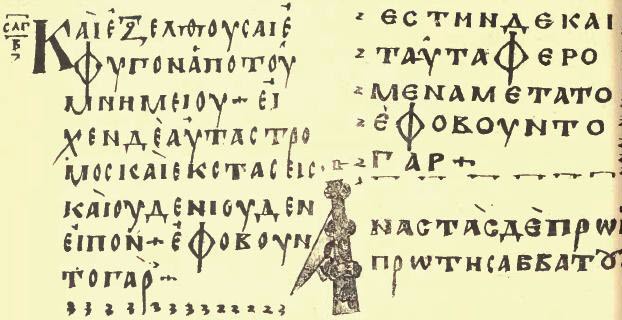 ϹΛΓ
Β
ΚΑΙΕΞΕΛΘΟΥϹΑΙΕ
ΦΥΓΟΝΑΠΟΤΟΥ
ΜΝΗΜΕΙΟΥ+ΕΙ
ΧΕΝΔΕΑΥΤΑϹΤΡΟ
ΜΟϹΚΑΙΕΚϹΤΑϹΕΙϹ·
ΚΑΙΟΥΔΕΝΙΟΥΔΕΝ
ΕΙΠΟΝ+ΕΦΟΒΟΥΝ
ΤΟΓΑΡ+
ΕϹΤΗΝΔΕΚΑΙ
ΤΑΥΤΑΦΕΡΟ
ΜΕΝΑΜΕΤΑΤΟ
ΕΦΟΒΟΥΝΤΟ
ΓΑΡ+
ΑΝΑϹΤΑϹΔΕΠΡΩΙ
ΠΡΩΤΗϹΑΒΒΑΤȢ